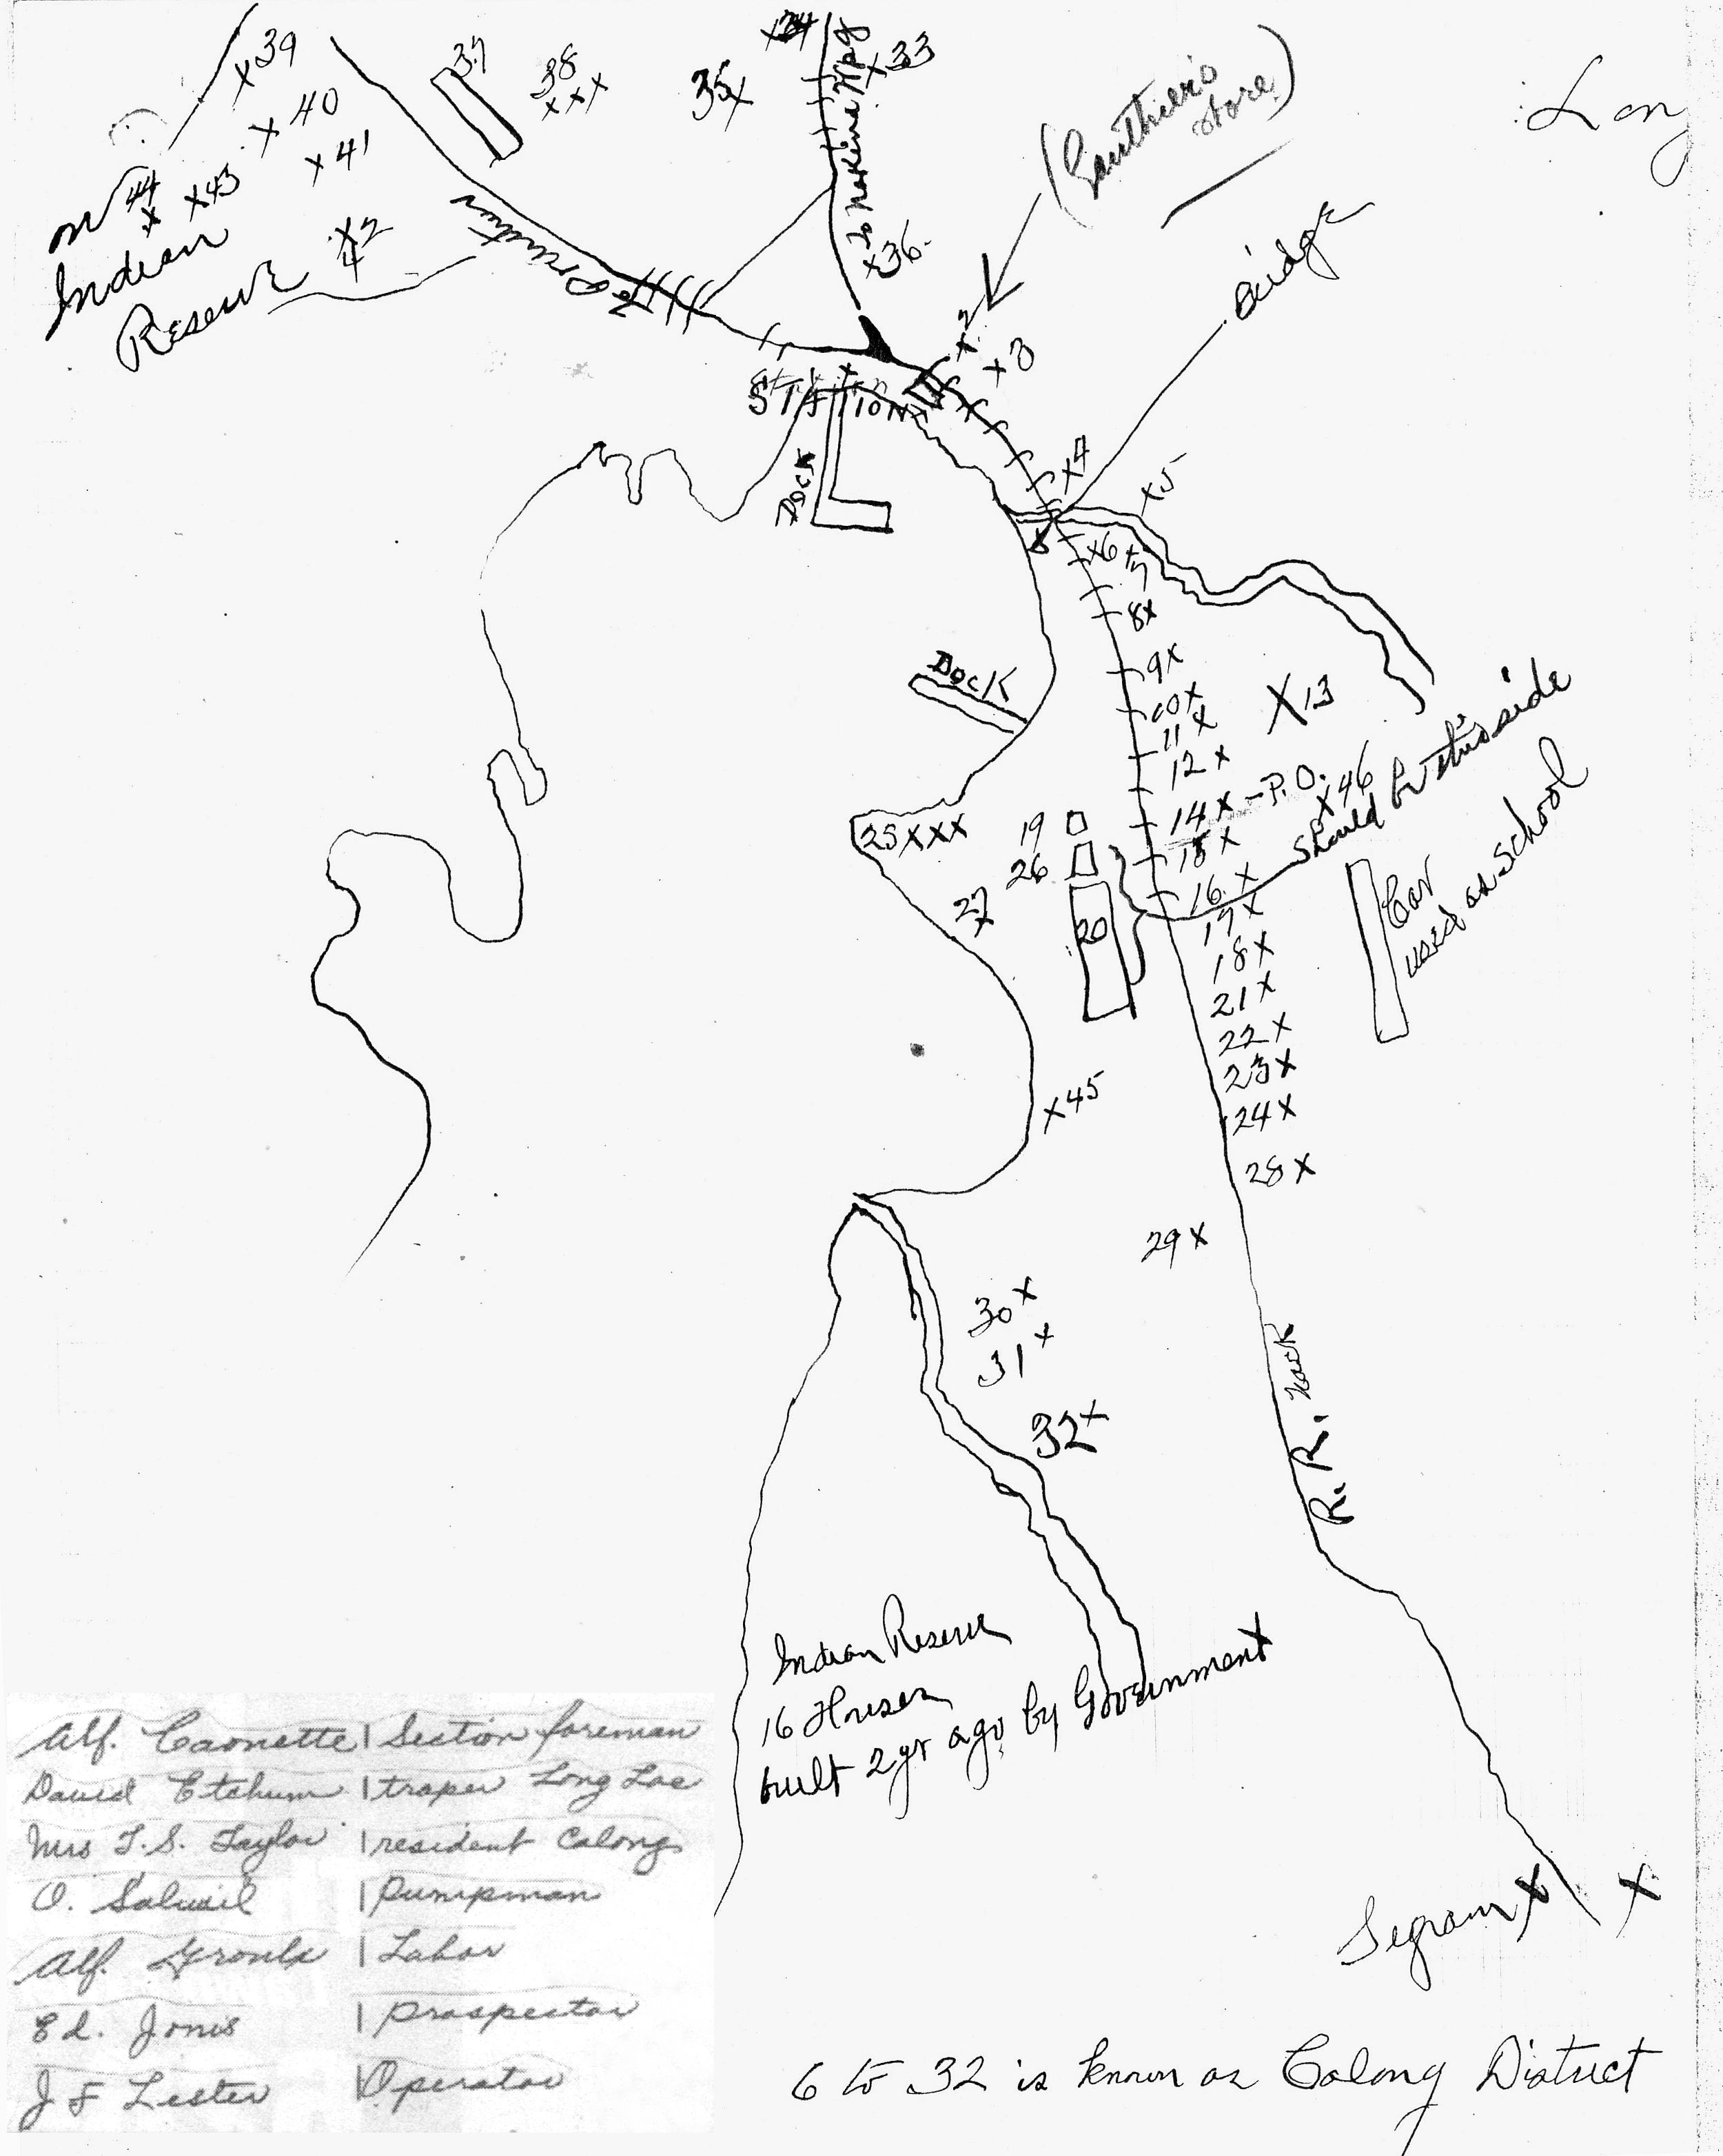 x39
37
38
xxx
35x
x34
To Nakina Hpg
x33
(Gauthier's
store)
Long
x 40
x 41
x43
44
x
on
Indian
Reserve
x2
4
x36
Bridge
x2
x3
Station
STATION
Dock
x4
x5
x6
x7
8x
9x
10x
11x
12x
X13
Dock
14x - P.O.
x46
15x
should be this side
16x
17x
18x
21x
22x
23x
24x
28x
Car
used as school
25xxx
19
26
27
x
20
x45
29x
30x
31x
32x
R. R. Track
Indian Reserve
16 Houses
built 2 yr ago by Government
x
Segram x
x
Alf. Caonette | Section foreman
David Etchum | traper Long Lac
Mrs T.S. Taylor | resident Calong
O. | Pumpman
Alf. | Labor
Ed. Jones | Prospector
J F Lester | Operator
6 to 32 is known as Calong District